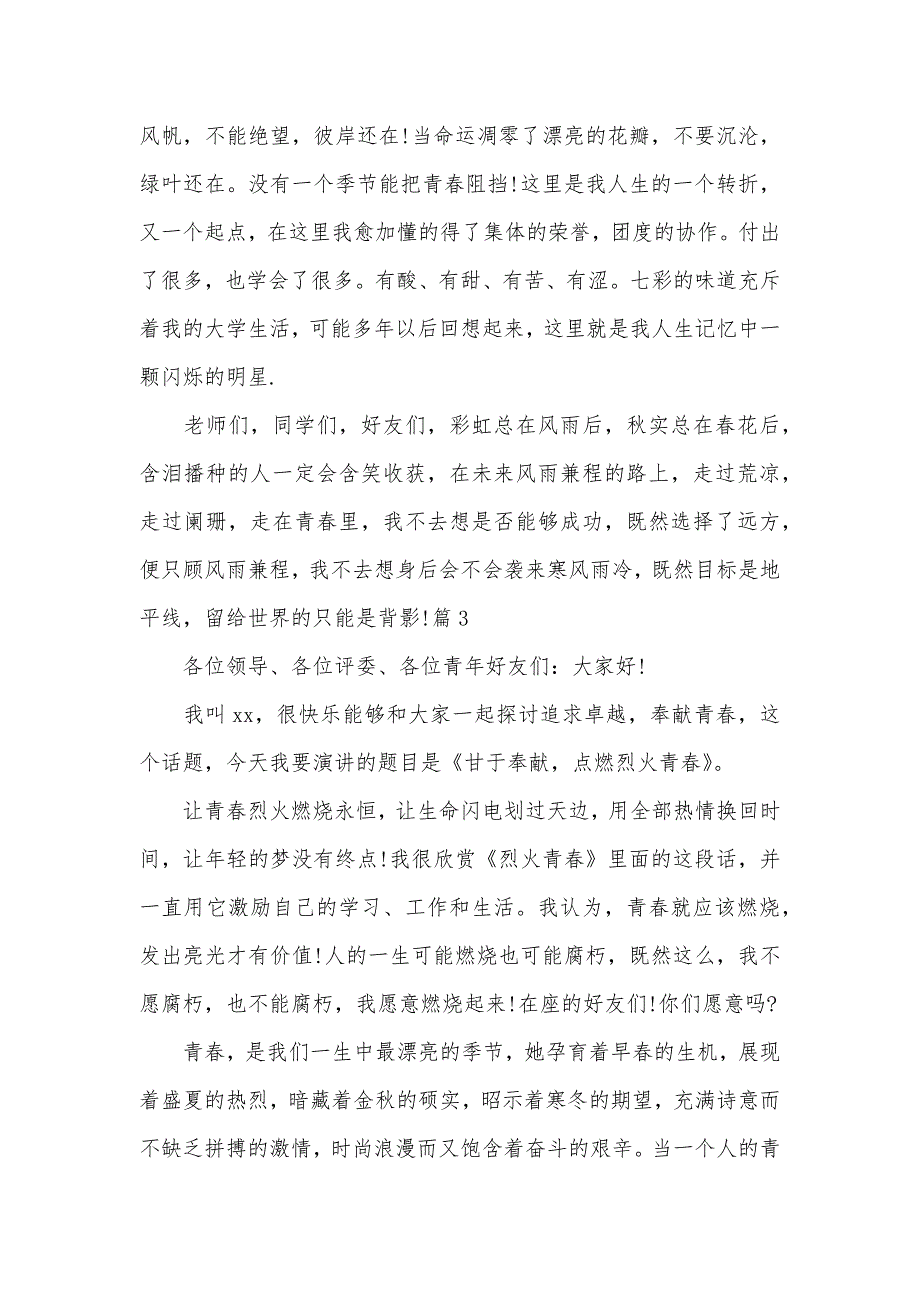 风帆，不能绝望，彼岸还在!当命运凋零了漂亮的花瓣，不要沉沦，
绿叶还在。没有一个季节能把青春阻挡!这里是我人生的一个转折，
又一个起点，在这里我愈加懂的得了集体的荣誉，团度的协作。付出
了很多，也学会了很多。有酸、有甜、有苦、有涩。七彩的味道充斥
着我的大学生活，可能多年以后回想起来，这里就是我人生记忆中一
颗闪烁的明星.
老师们，同学们，好友们，彩虹总在风雨后，秋实总在春花后，
含泪播种的人一定会含笑收获，在未来风雨兼程的路上，走过荒凉，
走过阑珊，走在青春里，我不去想是否能够成功，既然选择了远方，
便只顾风雨兼程，我不去想身后会不会袭来寒风雨冷，既然目标是地
平线，留给世界的只能是背影!篇3
各位领导、各位评委、各位青年好友们：大家好!
我叫 xx，很快乐能够和大家一起探讨追求卓越，奉献青春，这
个话题，今天我要演讲的题目是《甘于奉献，点燃烈火青春》。
让青春烈火燃烧永恒，让生命闪电划过天边，用全部热情换回时
间，让年轻的梦没有终点!我很欣赏《烈火青春》里面的这段话，并
一直用它激励自己的学习、工作和生活。我认为，青春就应该燃烧，
发出亮光才有价值!人的一生可能燃烧也可能腐朽，既然这么，我不
愿腐朽，也不能腐朽，我愿意燃烧起来!在座的好友们!你们愿意吗?
青春，是我们一生中最漂亮的季节，她孕育着早春的生机，展现
着盛夏的热烈，暗藏着金秋的硕实，昭示着寒冬的期望，充满诗意而
不缺乏拼搏的激情，时尚浪漫而又饱含着奋斗的艰辛。当一个人的青